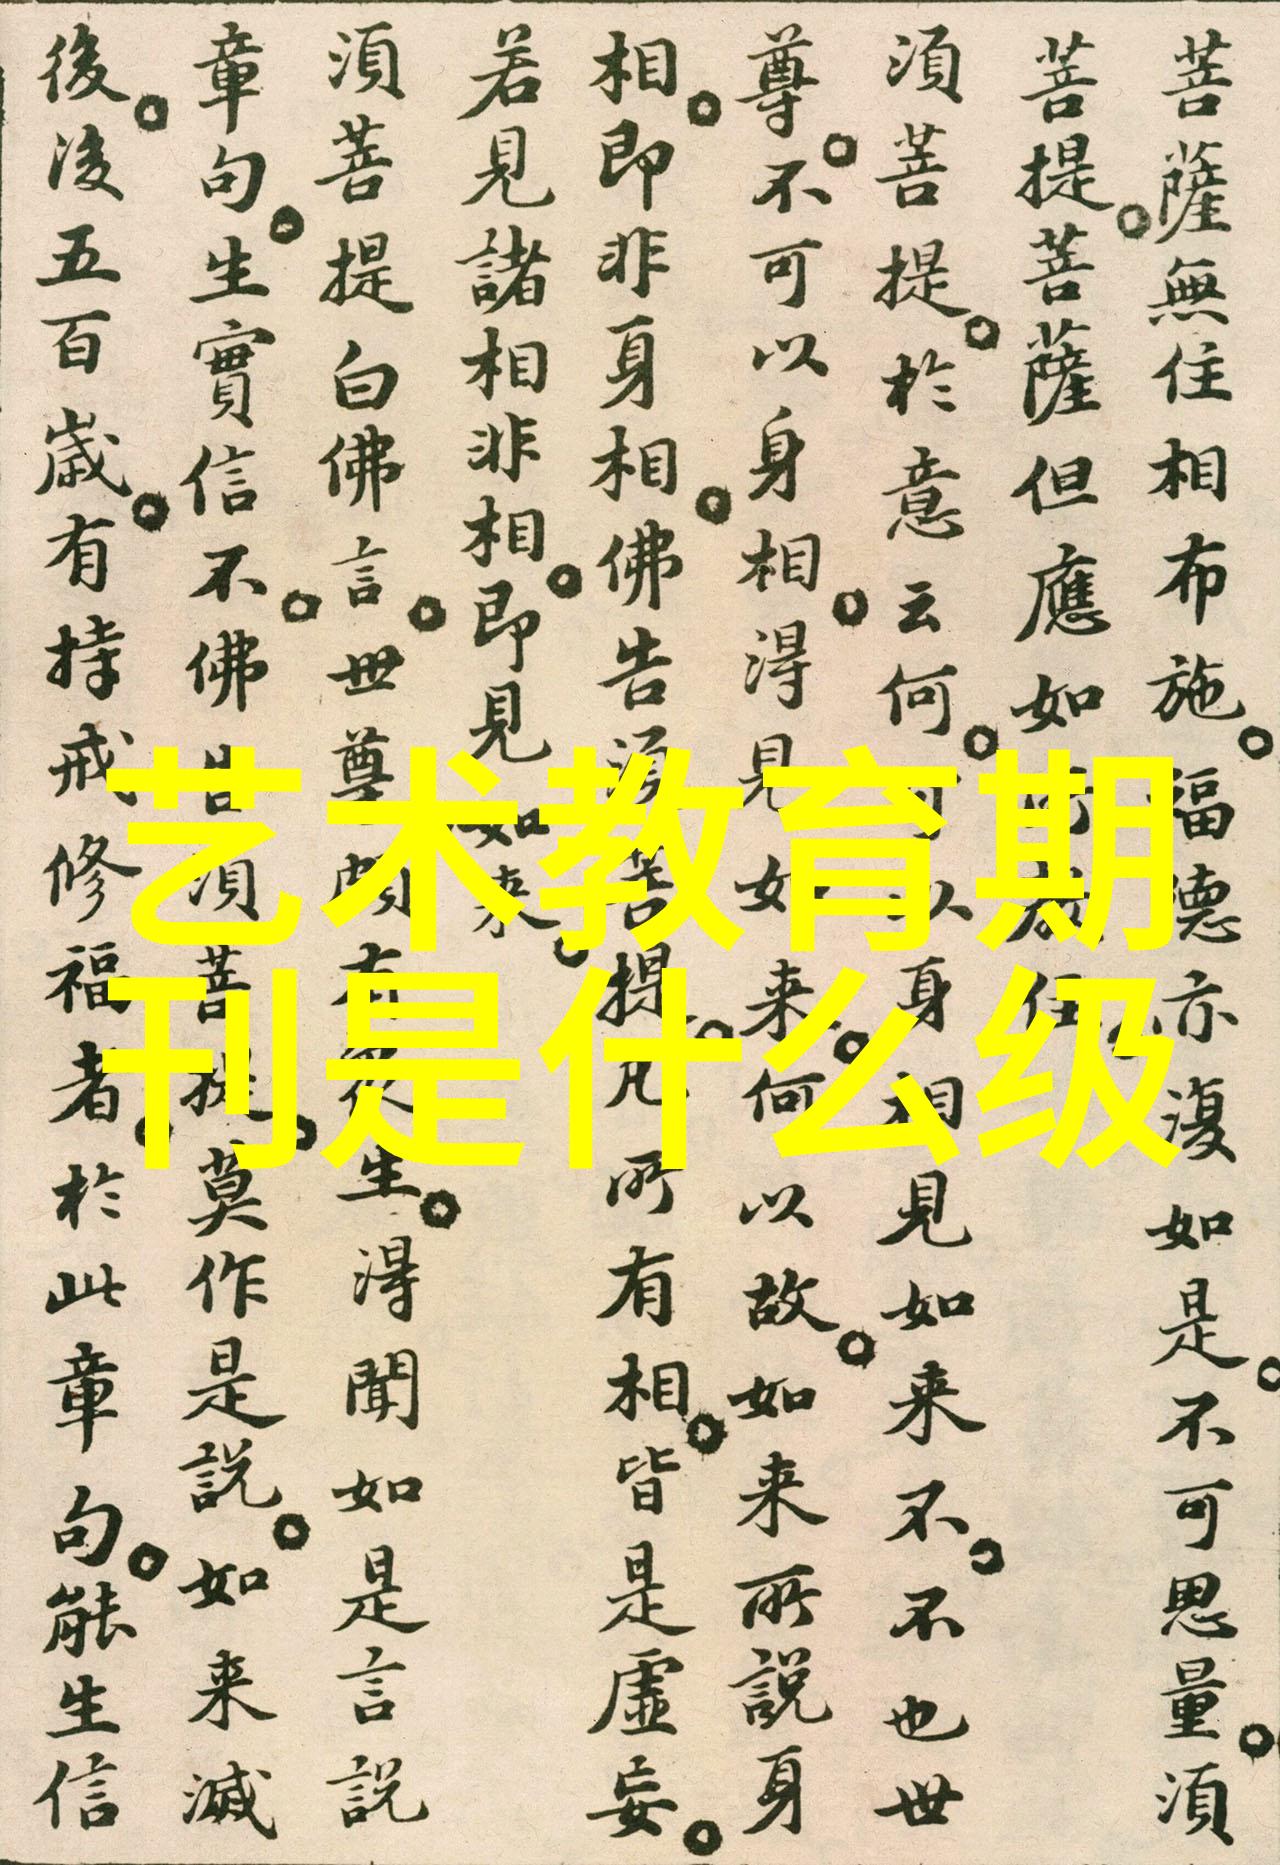 菩薩無住相布施福德亦復如是不可思量須
菩提菩薩但應如 住
須菩提於意云何 以身相見如来不不也世
尊不可以身相得見如来何以故如来所說身
相即非身相佛告須菩提凡所有相皆是虛妄
若見諸相非相即見如来
須菩提白佛言世尊頗有衆生得聞如是言說
章句生實信不佛告須菩提莫作是說如来滅
後後五百歲有持戒修福者於此章句能生信
艺术教育期
刊是什么级